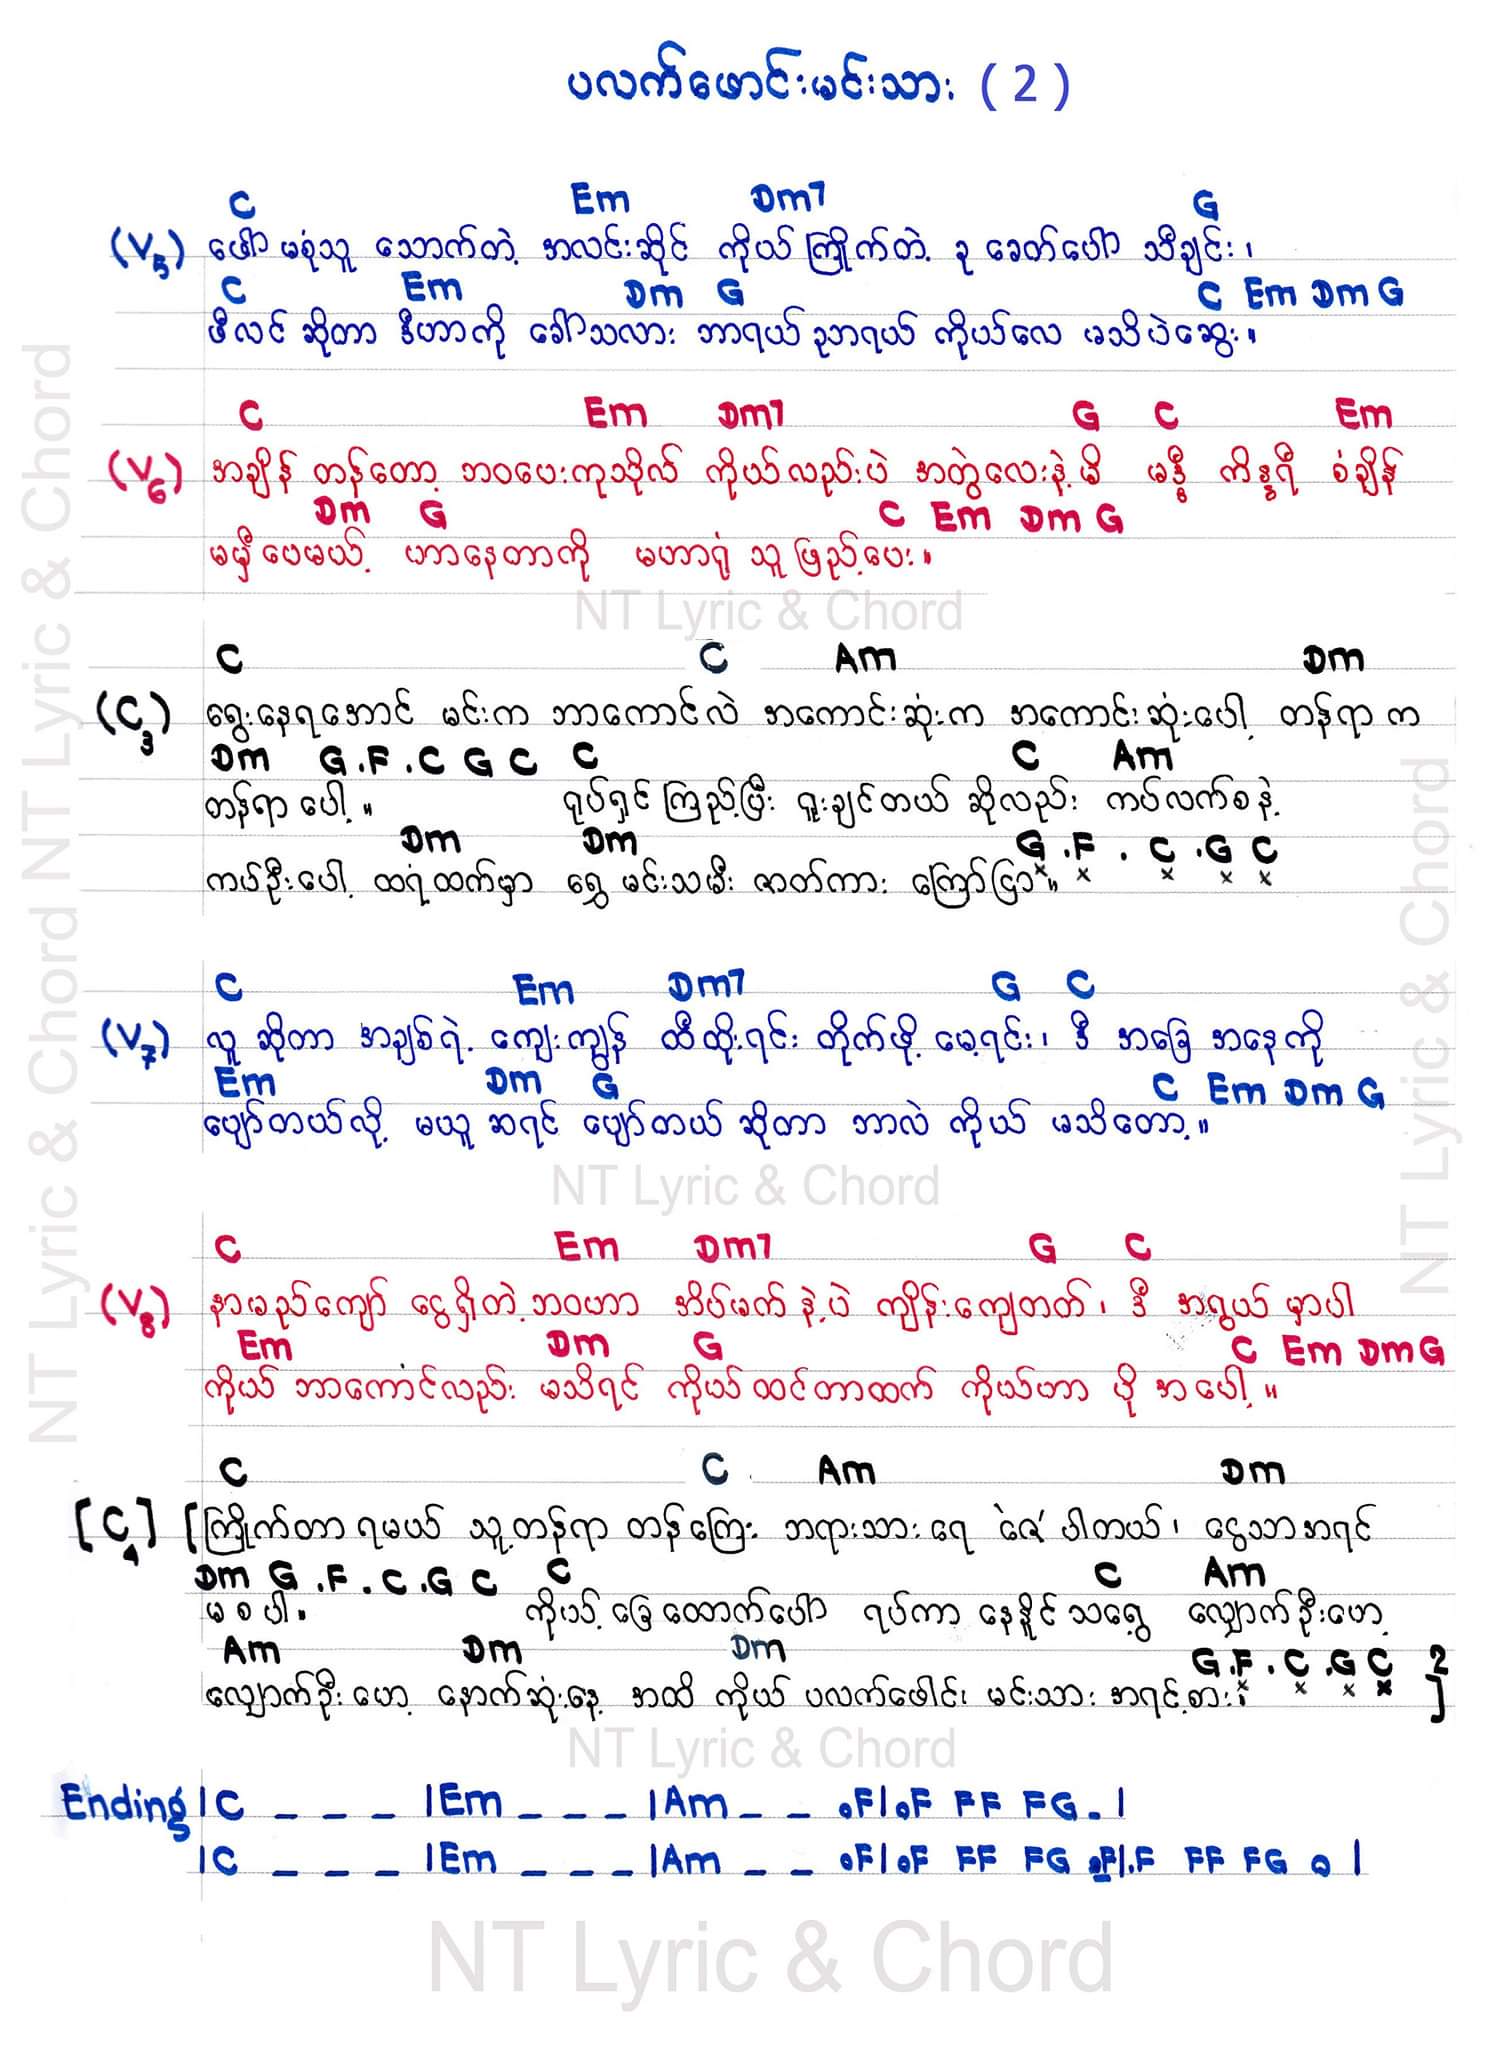 ပလက်ဖောင်းမင်းသား (2)
C Em Dm7 G
(V5) ဖော်မစုံသူ သောက်တဲ့ အလင်းဆိုင် ကိုယ်ကြိုက်တဲ့ ခု ခေတ်ပေါ် သီချင်း၊
C Em Dm G C Em Dm G
ဖီလင် ဆိုတာ ဒီဟာကို ခေါ်သလား ဘာရယ် ညာရယ် ကိုယ်လေ မသိပဲဆွေး။
C Em Dm7 G C Em
(V6) အချိန် တန်တော့ ဘဝပေးကုသိုလ် ကိုယ်လည်းပဲ အတွဲလေးနဲ့မို မဒ္ဒီ ကိန္နရီ စံချိန်
Dm G C Em Dm G
မမှီပေမယ့် ဟာနေတာကို မဟာရုံ သူဖြည့်ပေး။
NT Lyric & Chord
C C Am Dm
(C3) ရွေးနေရအောင် မင်းက ဘာကောင်လဲ အကောင်းဆုံးက အကောင်းဆုံးပေါ့ တန်ရာ က
Dm G.F.C G C C C Am
တန်ရာ ပေါ့။ ရုပ်ရှင်ကြည့်ပြီး ရူးချင်တယ် ဆိုလည်း ကပ်လက်စနဲ့
Dm Dm G.F.C.G C
ကပ်ဦးပေါ့ ထရံထက်မှာ ရွှေ မင်းသမီး ဇာတ်ကား ကြော်ငြာ။
C Em Dm7 G C
(V7) လူ ဆိုတာ အချစ်ရဲ့ ကျေးကျွန် ထီထိုးရင်း တိုက်ဖို့ မေ့ရင်း၊ ဒီ အခြေ အနေကို
Em Dm G C Em Dm G
ပျော်တယ်လို့ မယူ ဆရင် ပျော်တယ် ဆိုတာ ဘာလဲ ကိုယ် မသိတော့။
NT Lyric & Chord
C Em Dm7 G C
(V8) နာမည်ကျော် ငွေရှိတဲ့ဘဝဟာ အိပ်မက်နဲ့ပဲ ကျိန်းကျေတတ်၊ ဒီ အရွယ် မှာပါ
Em Dm G C Em Dm G
ကိုယ် ဘာကောင်လည်း မသိရင် ကိုယ်ထင်တာထက် ကိုယ်ဟာ ပို အပေါ့။
C C Am Dm
[C4] [ကြိုက်တာ ရမယ် သူ့တန်ရာ တန်ကြေး ဘုရားသားရေ ဈေး ပါတယ်၊ ငွေသာအရင်
Dm G.F.C.G C C C Am
မ စ ပါ။ ကိုယ့်ခြေထောက်ပေါ် ရပ်ကာ နေနိုင် သရွေ့ လျှောက်ဦးဟေ့
Am Dm Dm G.F.C.G C 2]
လျှောက်ဦး ဟေ့ နောက်ဆုံးနေ့ အထိ ကိုယ် ပလက်ဖေါင်း မင်းသား အရင့်စား။
NT Lyric & Chord
Ending |C _ _ _ |Em _ _ _ |Am _ _ .F|.F FF FG . |
|C _ _ _ |Em _ _ _ |Am _ _ .F|.F FF FG .F|.F FF FG . |
NT Lyric & Chord
NT Lyric & Chord NT Lyric & Chord NT Lyric & Chord
NT Lyric & Chord